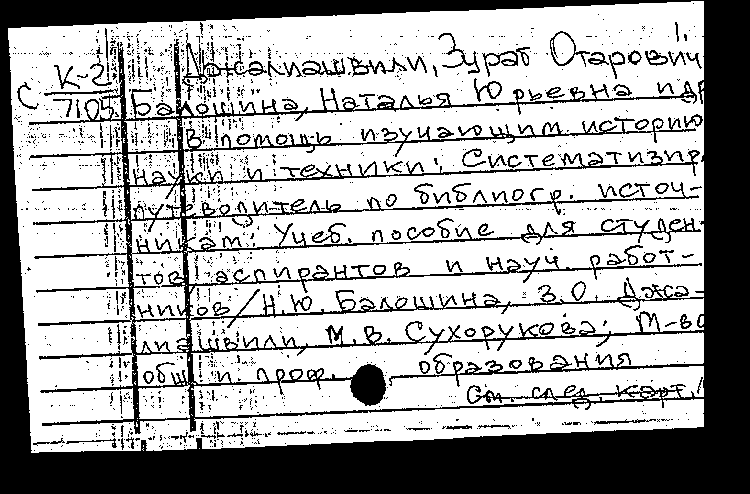 1.
К-2 Джалиашвили, Зураб Отарович
С 7105 Балошина, Наталья Юрьевна и др
В помощь изучающим историю
науки и техники: Систематизир.
путеводитель по библиогр. источ-
никам: Учеб. пособие для студен-
тов, аспирантов и науч. работ-
ников / Н.Ю. Балошина, З.О. Джа-
лиашвили, М.В. Сухорукова; М-во
общ. и проф. образования
См. след. карт.